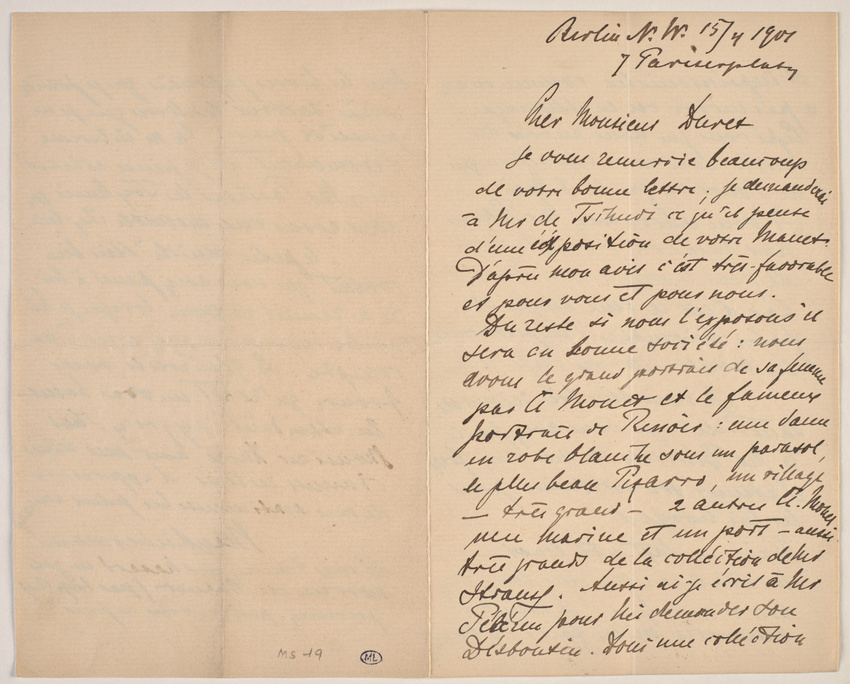 Berlin N. W. 15/4 1901
7 Pariserplatz
Cher Monsieur Duret
je vous remercie beaucoup
de votre bonne lettre ; je demanderai
à Mr de Tschudi ce qu'il pense
d'une exposition de votre Manet.
D'après mon avis c'est très-favorable
et pour vous et pour nous.
Du reste si nous l'exposons il
sera en bonne société : nous
avons le grand portrait de sa femme
par Cl Monet et le fameux
portrait de Renoir : une dame
en robe blanche sous un parasol,
le plus beau Pizarro, un village
— très grand — 2 autres Cl. Monet
une marine et un port — aussi
très grands de la collection de Mr
Strauss. Aussi ai-je écrit à Mr
pour lui demander son
Desboutin. Donc une collection
MS-19
ML